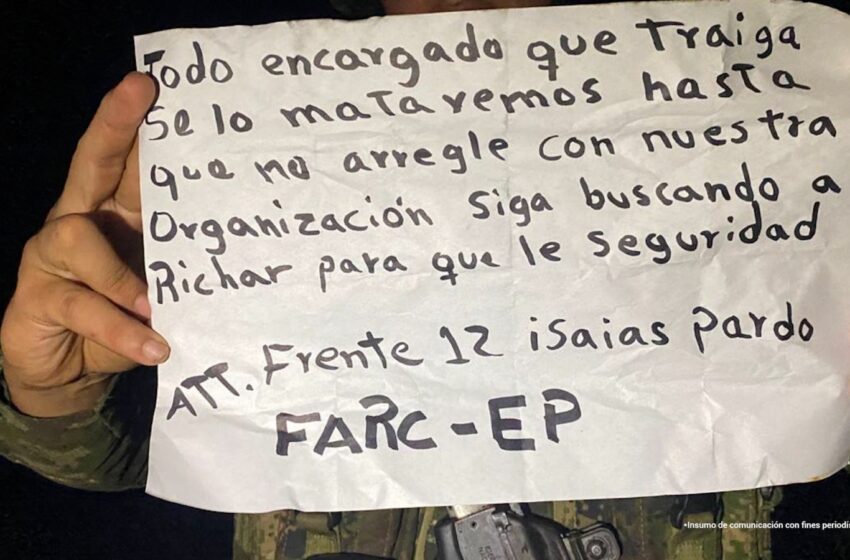 Todo encargado que Traiga
Se lo mataremos hasta
que no arregle con nuestra
Organización siga buscando a
Richar para que le seguridad
ATT. Frente 12 isaias pardo
FARC-EP
•Insumo de comunicación con fines periodí